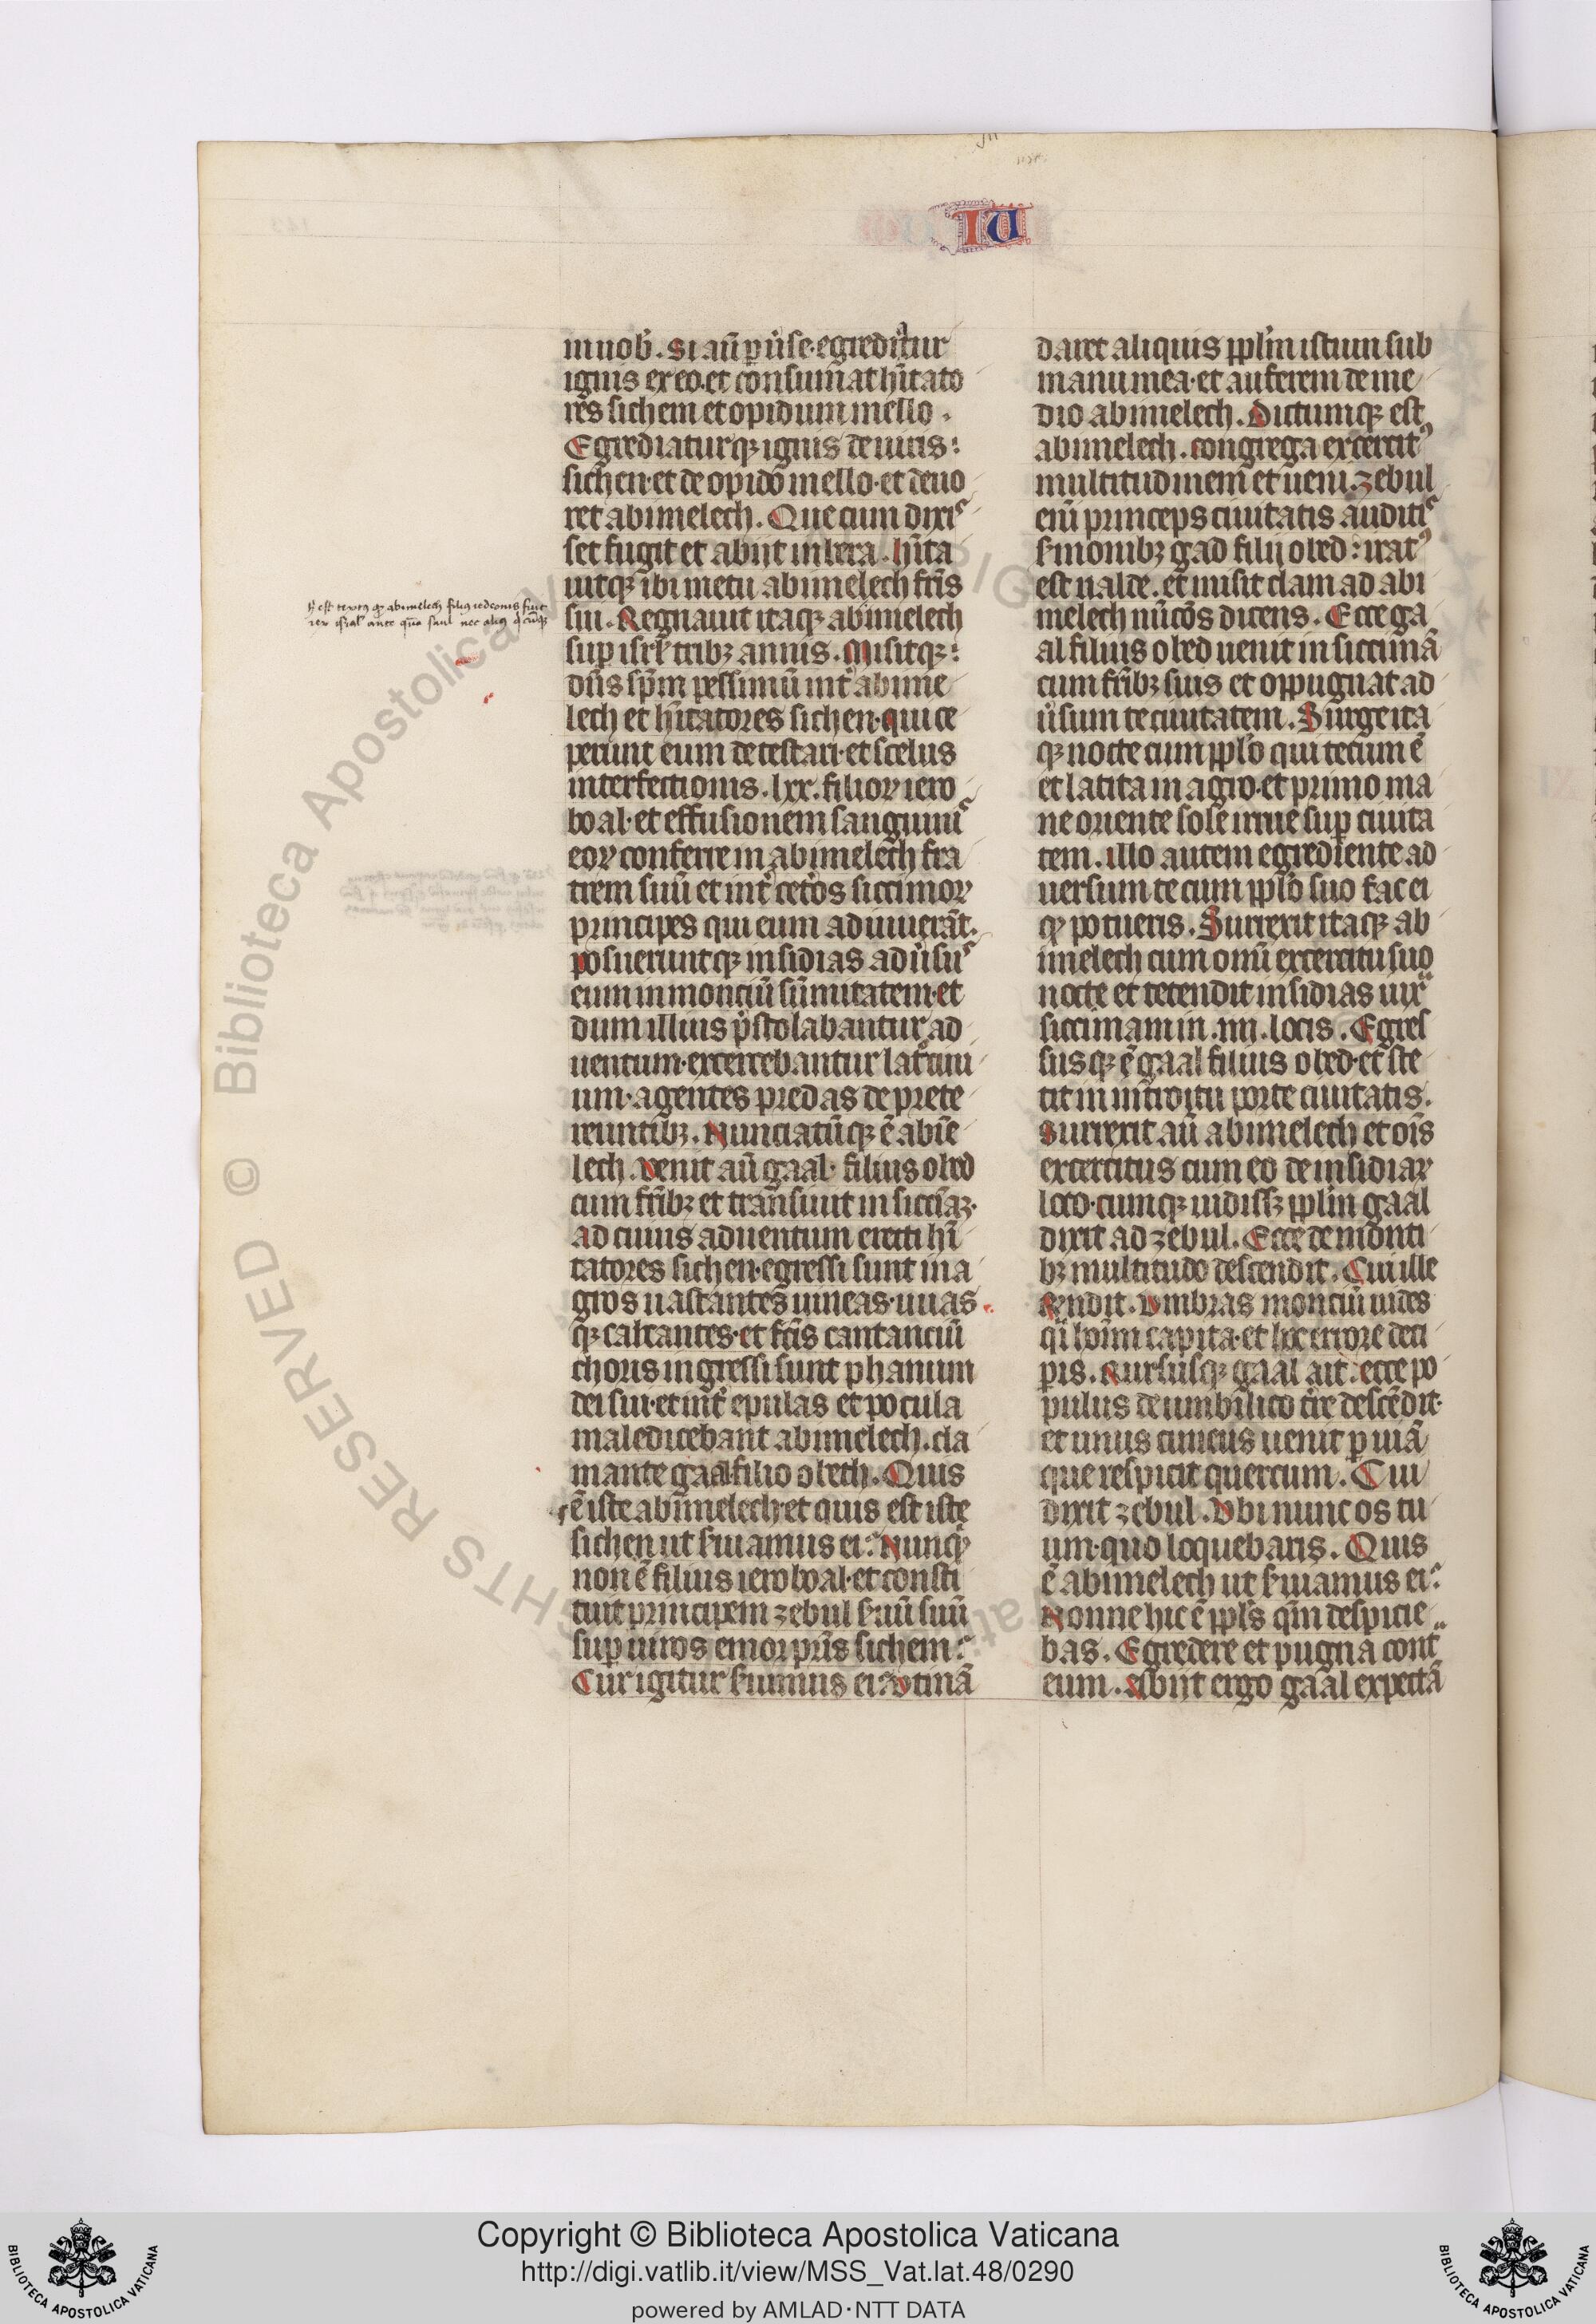 IU
in uob̾. Si aū ꝑ ūse. egrediatur
ignis ex eo. et consumat hītato
res sichem et opidum mello.
Egrediaturqꝫ ignis de uiris
sichen. et de opido mello. et deuo
ret abimelech. Que cum dixiſ
set fugit et abijt in bera. hīta
uitqꝫ ibi metu abimelech fr̄is
sui. Regnauit itaqꝫ abimelech
suꝑ isrl̄ tribꝫ annis. Misitqꝫ
dn̄s sp̄m pessimū int̾ abime
lech et hītatores sichen. qui ce
perunt eum detestari. et scelus
interfectionis. lxx. filioꝝ iero
boal. et effusionem sanguiniſ
eoꝝ conferre in abimelech fra
trem suū et int̾ cet̾os siccimoꝝ
principes qui eum adiuuerāt.
posueruntqꝫ insidias adūsuſ
eum in monciū sūmitatem. et
dum illius p̄stolabantur ad
uentum. excercebantur lat̾ocini
um. agentes predas de prete
reuntibꝫ. Nunciatūqꝫ ē abīe
lech. Venit aū gaal. filius obed
cum fr̄ibꝫ et transiuit in siccīaꝫ.
ad cuius aduentum erecti hī
tatores sichen. egressi sunt in a
gros uastantes uineas. uuas
qꝫ calcantes. et fc̄is cantanciū
choris ingressi sunt phanum
dei sui. et int̾ epulas et pocula
maledicebant abimelech. cla
mante gaal filio obeth. Quis
ē iste abimelech. et quis est iste
sichen. ut s̾uiamus ei? Nunqͥ
non ē filius ieroboal. et consti
tuit principem zebul s̾uū suū
suꝑ uiros emor pr̄is sichem?
Cur igitur s̾uimus ei? Vtinā
daret aliquis ppl̄m istum sub
manu mea. et auferem de me
dio abimelech. Dictumqꝫ est
abimelech. congrega excercitꝰ
multitudinem et ueni. Zebul
enī princeps ciuitatis auditiſ
s̾monibꝫ gad filij obed: iratꝰ
est ualde. et misit clam ad abi
melech nūcōs dicens. Ecce ga
al filius obed uenit in siccimā
cum fr̄ibꝫ suis et oppugnat ad
ūsum te ciuitatem. Surge ita
qꝫ nocte cum ppl̄o qui tecum ē
et latita in agro. et primo ma
ne oriente sole irrue suꝑ ciuita
tem. illo autem egrediente ad
uersum te cum ppl̄o suo fac ei
qͩ potueris. Surrexit itaqꝫ ab
imelech cum omī excercitu suo
nocte et tetendit insidias iuxͣ
siccimam in .iiii. locis. Egreſ
susqꝫ ē gaal filius obed. et ste
tit in int̾oitu porte ciuitatis.
Surrexit aū abimelech et oīs
excercitus cum eo de insidiaꝝ
loco. cumqꝫ uidissꝫ ppl̄m gaal
dixit ad zebul. Ecce de monti
bꝫ multitudo descendit. Cui ille
rn̄dit. Vmbras monciū uides
qͣi hoīm capita. et hoc errore deci
pis. Rursusqꝫ gaal ait. ecce po
pulus de umbilico t̾re descēdit.
et unus cuneus uenit ꝑ uiā
que respicit quercum. Cui
dixit zebul. Vbi nunc os tu
um. quo loquebaris. Quis
ē abimelech ut s̾uiamus ei?
Nonne hic ē ppl̄s qͣm despicie
bas. Egredere et pugna contͣ
eum. Abijt ergo gaal expectā
h̾ est textꝰ qͩ abimelech filiꝰ iedeonis fuit
rex isral' ante qͣ saul nec aliqͥs
Copyright © Biblioteca Apostolica Vaticana
http://digi.vatlib.it/view/MSS_Vat.lat.48/0290
powered by AMLAD·NTT DATA
BIBLIOTECA APOSTOLICA VATICANA
BIBLIOTECA APOSTOLICA VATICANA